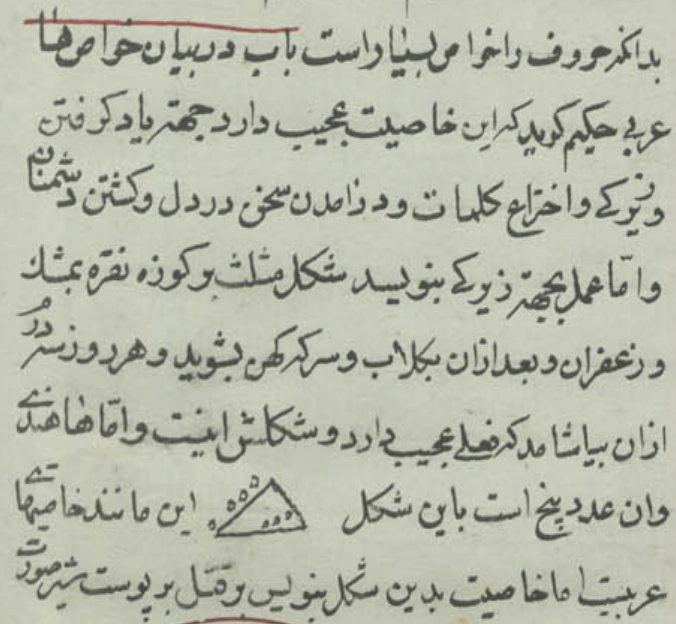 بدانکه حروف را خواص بسیار است باب در بیان خواص ها
عربی حکیم کوید که این خاصیت عجیب دارد جهته یاد کرفتن
و زیرکی و اختراع کلمات و در آمدن سخن در دل و کشتن دشمنان
و امّا عمل بجهته زیرکی بنویسد شکل مثلث بر کوزه نقره بمشک
و زعفران و بعد ازان بکلاب و سرکه کهن بشوید و هر روز سه درم
ازان بیاشامد که فعلی عجیب دارد و شکلش اینست و امّا ها هندی
وان عدد پنج است باین شکل این مانند خاصیتهای
عربیت اما خاصیت بدین شکل بنویس بر پوست شیر صورت